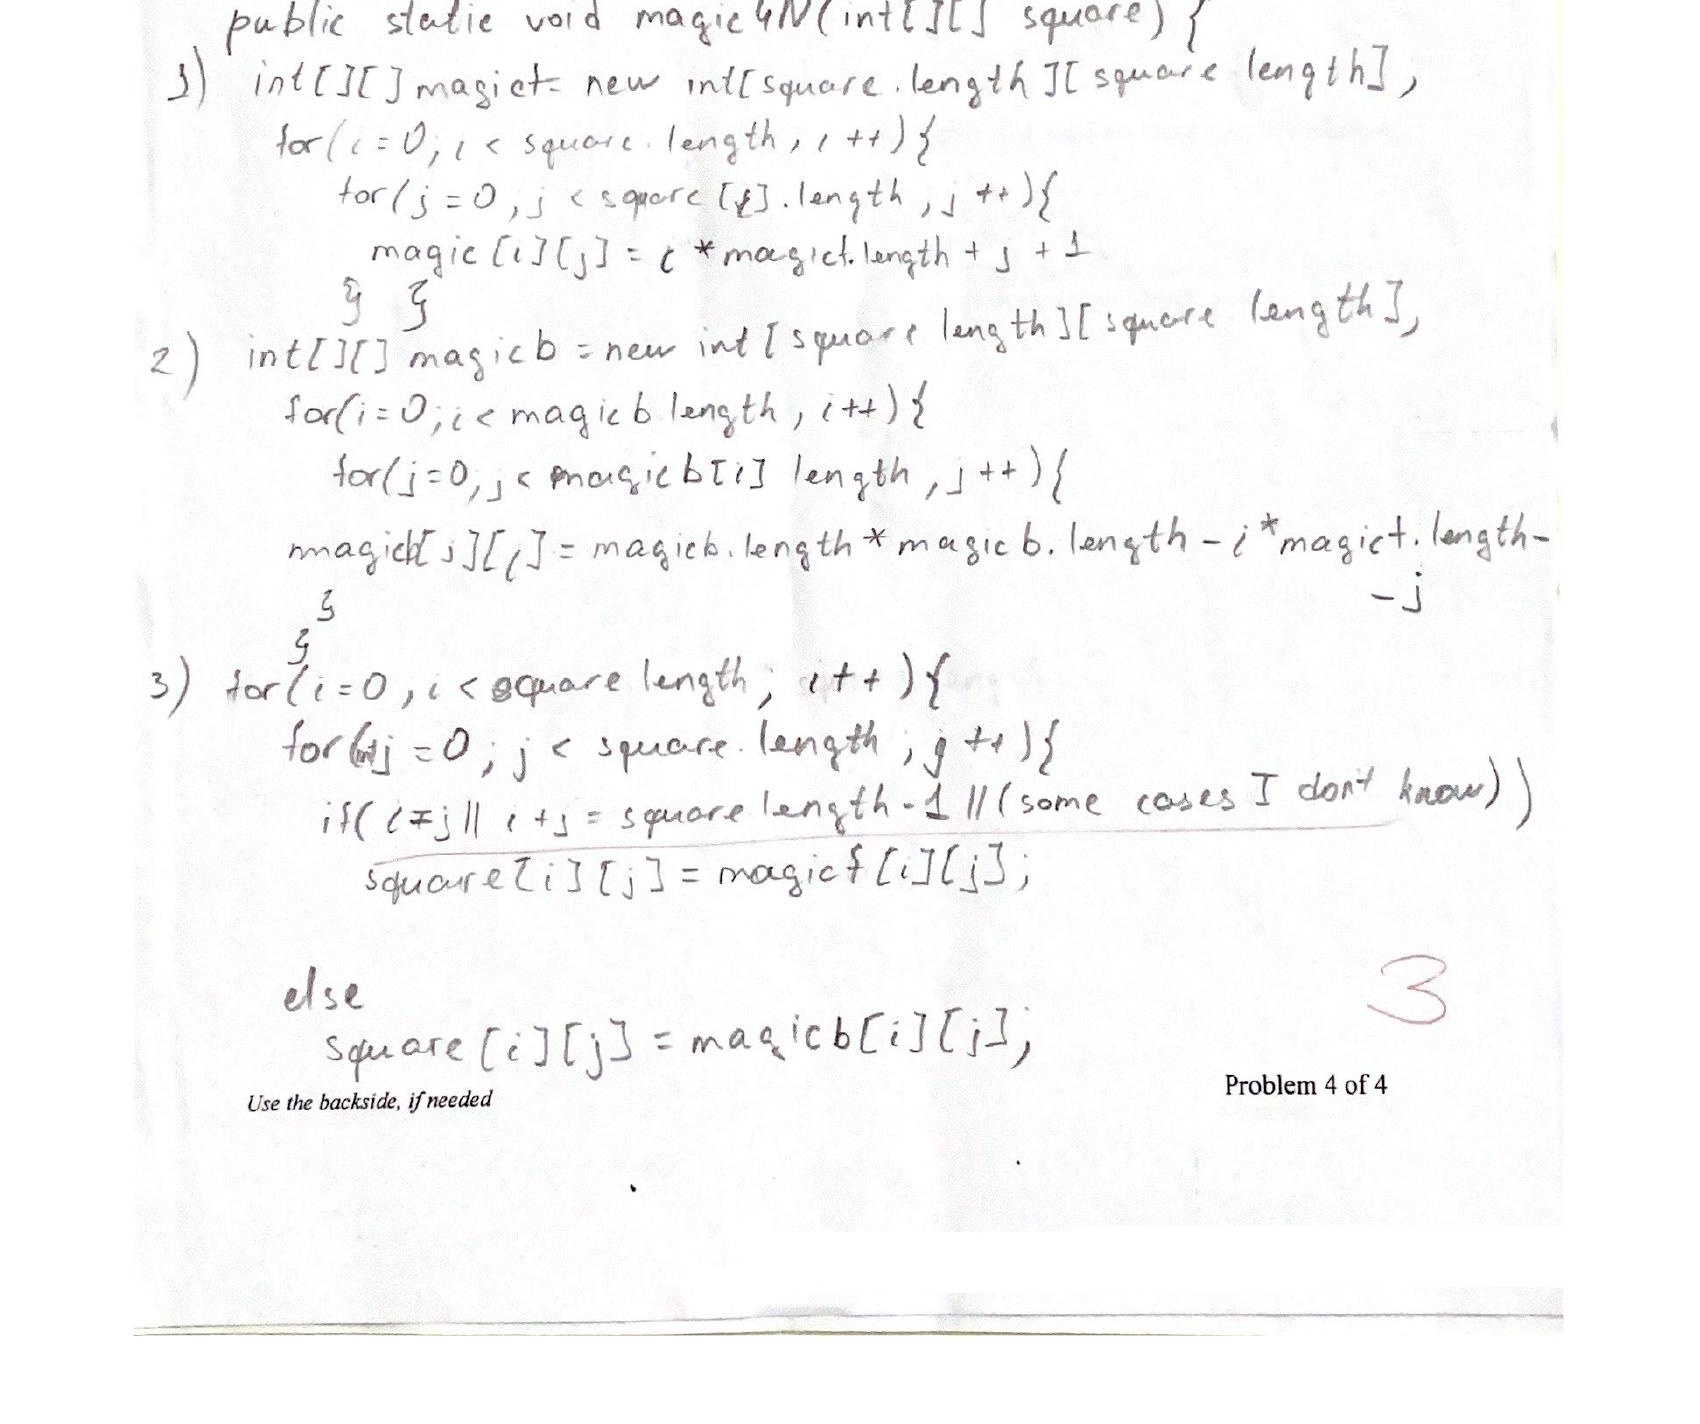 public static void magic4N(int[][] square) {
1) int[][] magict= new int[square.length][square length],
for(i=0; i < square.length, i++){
for(j=0, j < square[i].length, j++){
magic[i][j] = i * magict.length + j + 1
} }
2) int[][] magicb = new int[square length][square length],
for(i=0; i < magicb length, i++){
for(j=0, j < magicb[i] length, j++){
magicb[j][i] = magicb.length * magicb.length - i * magict.length -
- j
}
}
3) for(i=0, i < square length; i++){
for(int j=0; j < square.length; j++){
if( i=j || i+j = square length-1 || (some cases I don't know))
square[i][j] = magict[i][j];
else
3
square[i][j] = magicb[i][j];
Use the backside, if needed
Problem 4 of 4